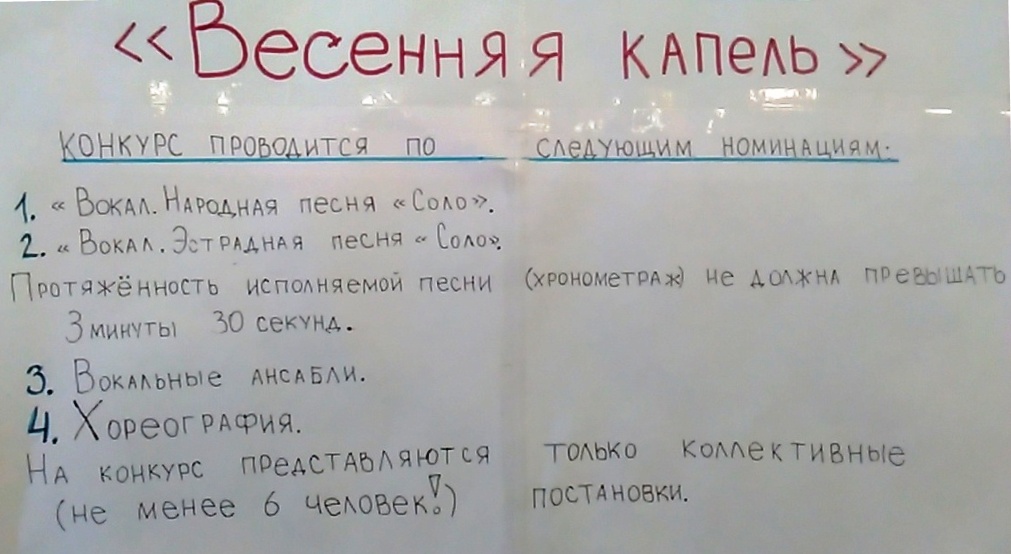 «Весенняя капель»
Конкурс проводится по следующим номинациям.
1. «Вокал. Народная песня «Соло».
2. «Вокал. Эстрадная песня «Соло».
Протяжённость исполняемой песни (хронометраж) не должна превышать
3 минуты 30 секунд.
3. Вокальные ансабли.
4. Хореография.
На конкурс представляются только коллективные
(не менее 6 человек!) постановки.